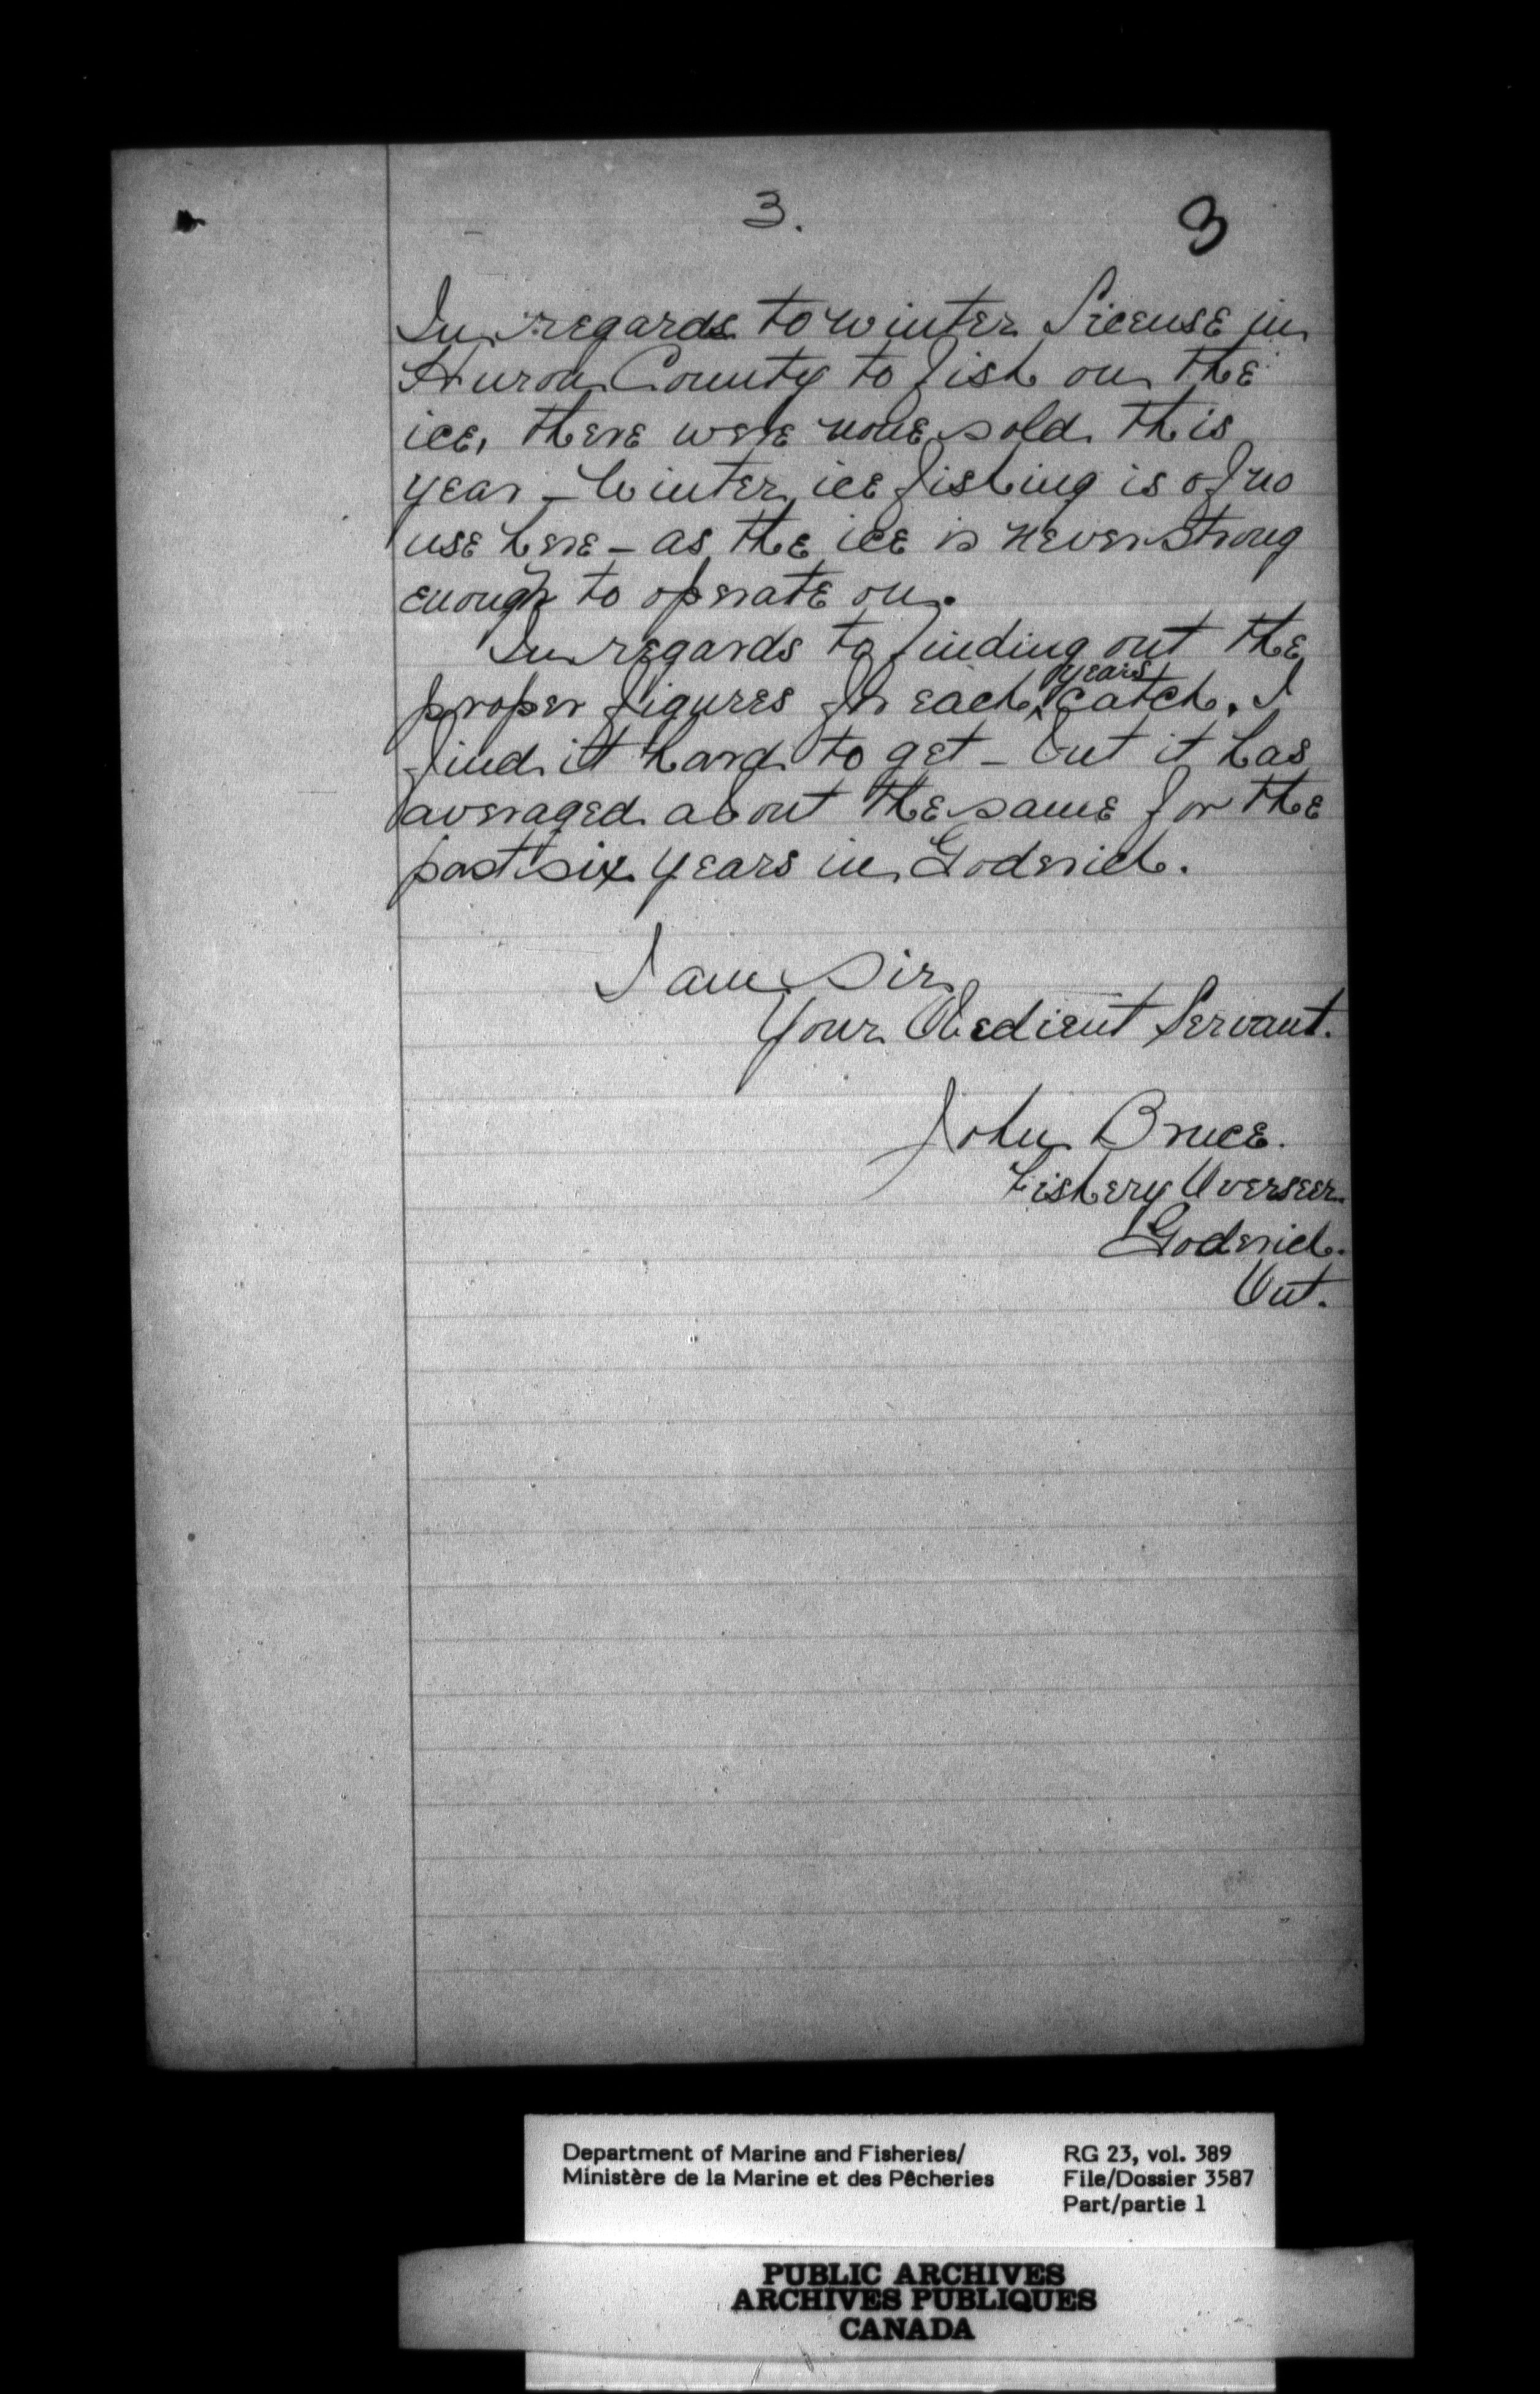 3.
3
In regards to winter License in
Huron County to fish on the
ice, there were none sold this
year - Winter ice fishing is of no
use here - as the ice is never strong
enough to operate on.
In regards to finding out the
years
proper figures for each ^ catch. I
find it hard to get - but it has
averaged about the same for the
past six years in Goderich.
I am Sir
Your Obedient Servant.
John Bruce.
Fishery Overseer.
Goderich.
Ont.
Department of Marine and Fisheries/
Ministère de la Marine et des Pêcheries
RG 23, vol. 389
File/Dossier 3587
Part/partie 1
PUBLIC ARCHIVES
ARCHIVES PUBLIQUES
CANADA